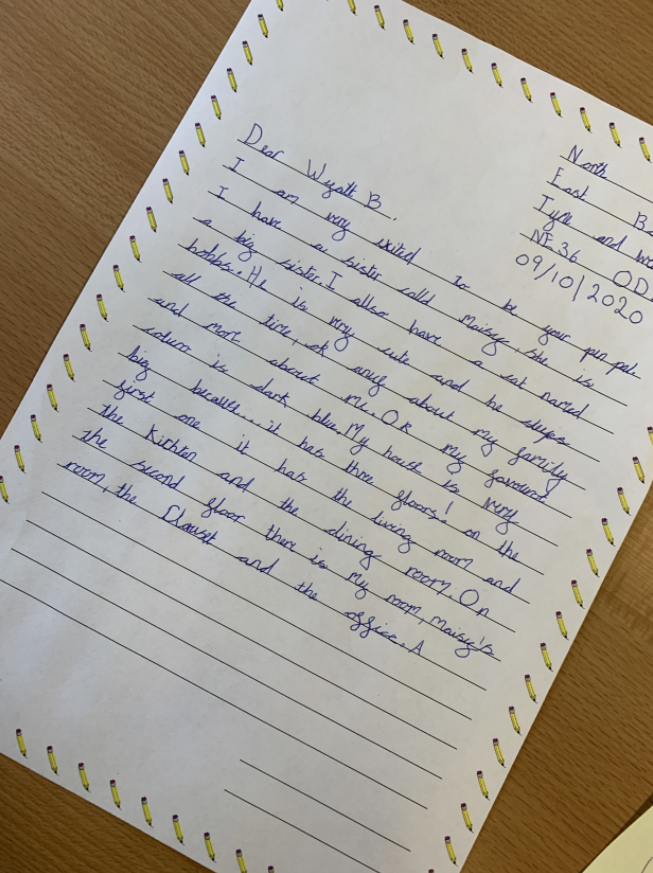 North
East Bo
Tyne and We
NE36 0D
09/10/2020
Dear Wyatt B.
I am very exited to be your pin pal.
I have a sister calld Maisy, she is
a big sister. I allso have a cat named
bobbs. He is very cute and he sleeps
all the time, ok about my family
and more about me. OK my favourit
colour is dark blue. My house is very
big because... it has three floors! on the
first one it has the living room and
the Kichten and the dining room. On
the second floor there is my room, Maisy's
room, the Clouset and the office. A